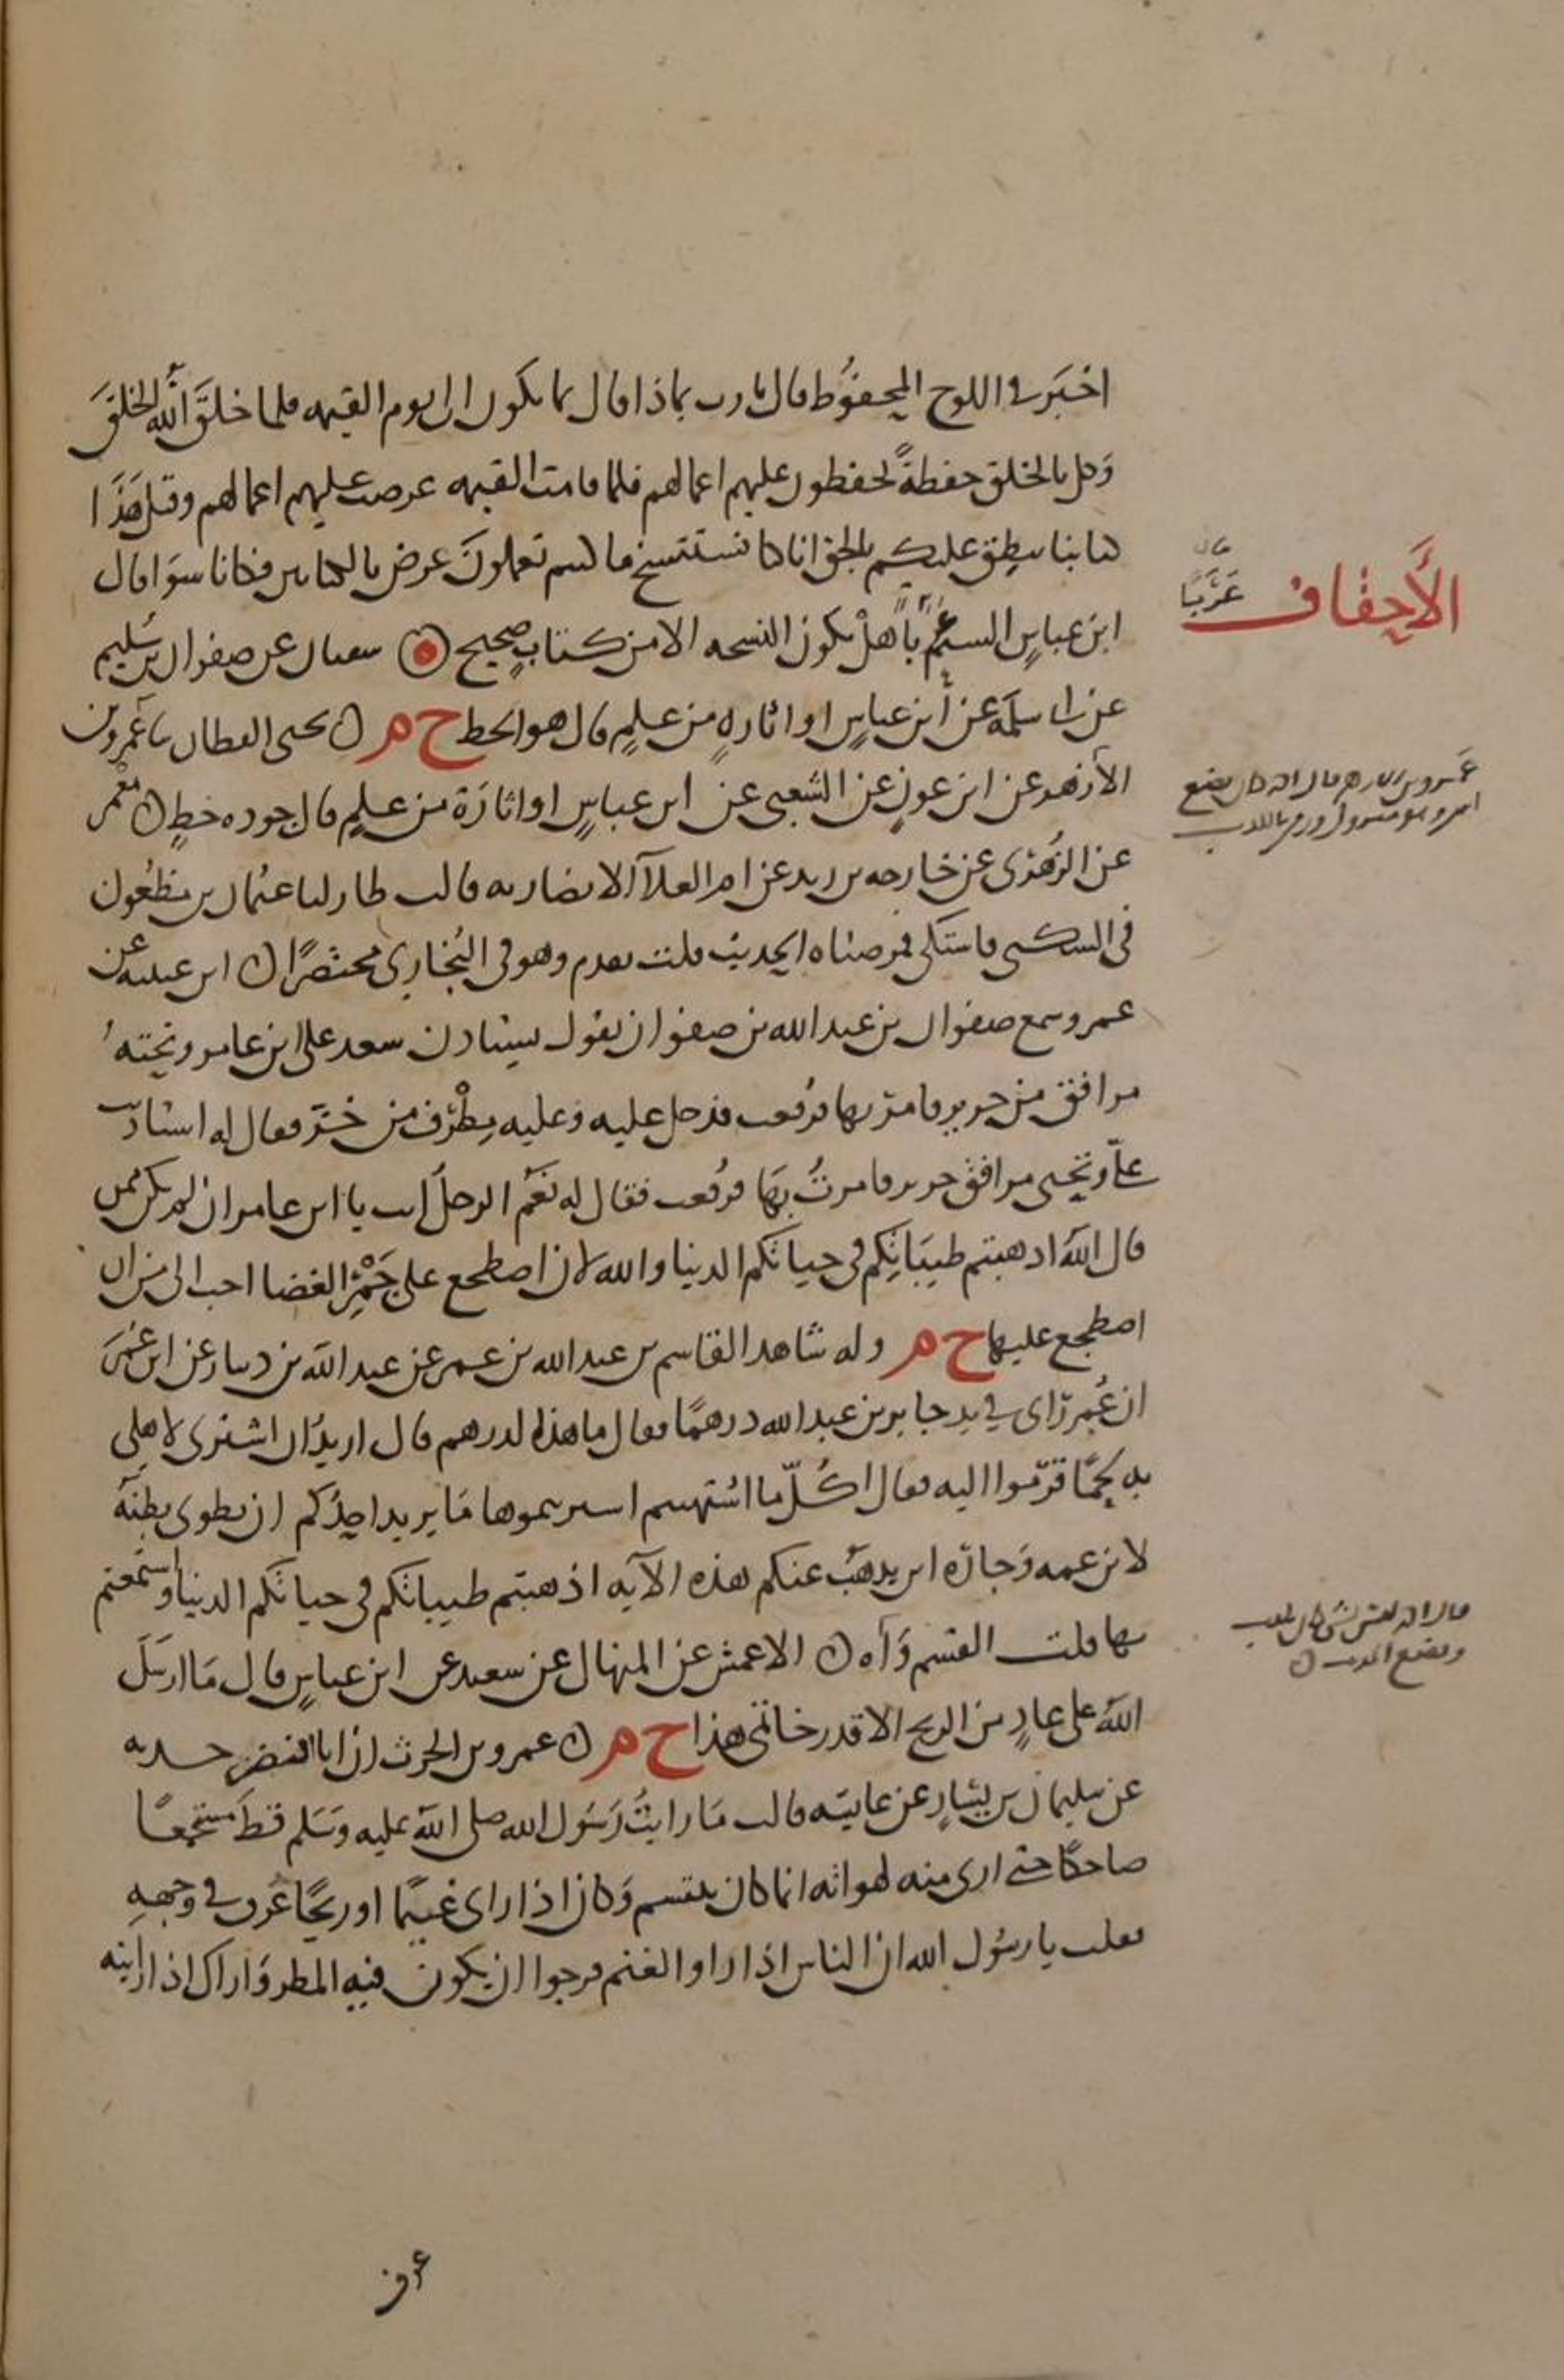 اخبر في اللوح المحفوظ قال يا رب بماذا قال بما يكون الى يوم القيمه فلما خلق الله الخلق
وكل بالخلق حفظة يحفظون عليهم اعمالهم فلما قامت القيمه عرضت عليهم اعمالهم وقيل هذا
كتابنا ينطق عليكم بالحق انا كنا نستنسخ ما كنتم تعملون عرض بالكتابين فكانا سوا قال
ابن عباس الستم عربا هل تكون النسخه الا من كتاب صحيح سفيان عن صفوان بن سليم
عن ابي سلمة عن ابن عباس او اثارة من علم قال هو الخط خ م ن يحيى القطان عمرو بن
الأزهر عن ابن عون عن الشعبي عن ابن عباس او اثارة من علم قال جوده خط ن معمر
عن الزهري عن خارجه بن زيد عن ام العلا الانصاريه قالت طار لنا عثمان بن مظعون
في السكنى فاشتكى فمرضناه الحديث قلت تقدم وهو في البخاري مختصرا ن ابن عيينه عن
عمرو سمع صفوان بن عبد الله بن صفوان يقول استاذن سعد على ابن عامر وتحته
مرافق من حرير فامر بها فرفعت فدخل عليه وعليه مطرف من خز فقال له استاذنت
علي وتحتي مرافق حرير فامرت بها فرفعت فقال له نعم الرجل انت يا ابن عامر ان لم تكن ممن
قال الله اذهبتم طيباتكم في حياتكم الدنيا والله لان اضطجع على جمر الغضا احب الي من ان
اضطجع عليها خ م وله شاهد القاسم بن عبد الله بن عمر عن عبد الله بن دينار عن ابن عمر
ان عمر راى في يد جابر بن عبد الله درهما فقال ما هذا الدرهم قال اريد ان اشتري لاهلي
به لحما قرموا اليه فقال اكل ما اشتهيتم اشتريتموها ما يريد احدكم ان يطوي بطنه
لابن عمه وجاره اين يذهب عنكم هذه الآيه اذهبتم طيباتكم في حياتكم الدنيا واستمتعتم
بها قلت القسم واه ن الاعمش عن المنهال عن سعيد عن ابن عباس قال ما ارسل
الله على عاد من الريح الا قدر خاتمي هذا خ م ن عمرو بن الحرث ان ابا النضر حدثه
عن سليمان بن يسار عن عايشه قالت ما رايت رسول الله صلى الله عليه وسلم قط مستجمعا
ضاحكا حتى ارى منه لهواته انما كان يتبسم وكان اذا راى غيما او ريحا عرف في وجهه
فقلت يا رسول الله ان الناس اذا راوا الغيم فرحوا ان يكون فيه المطر واراك اذا رايته
الأحقاف
قال
عربا